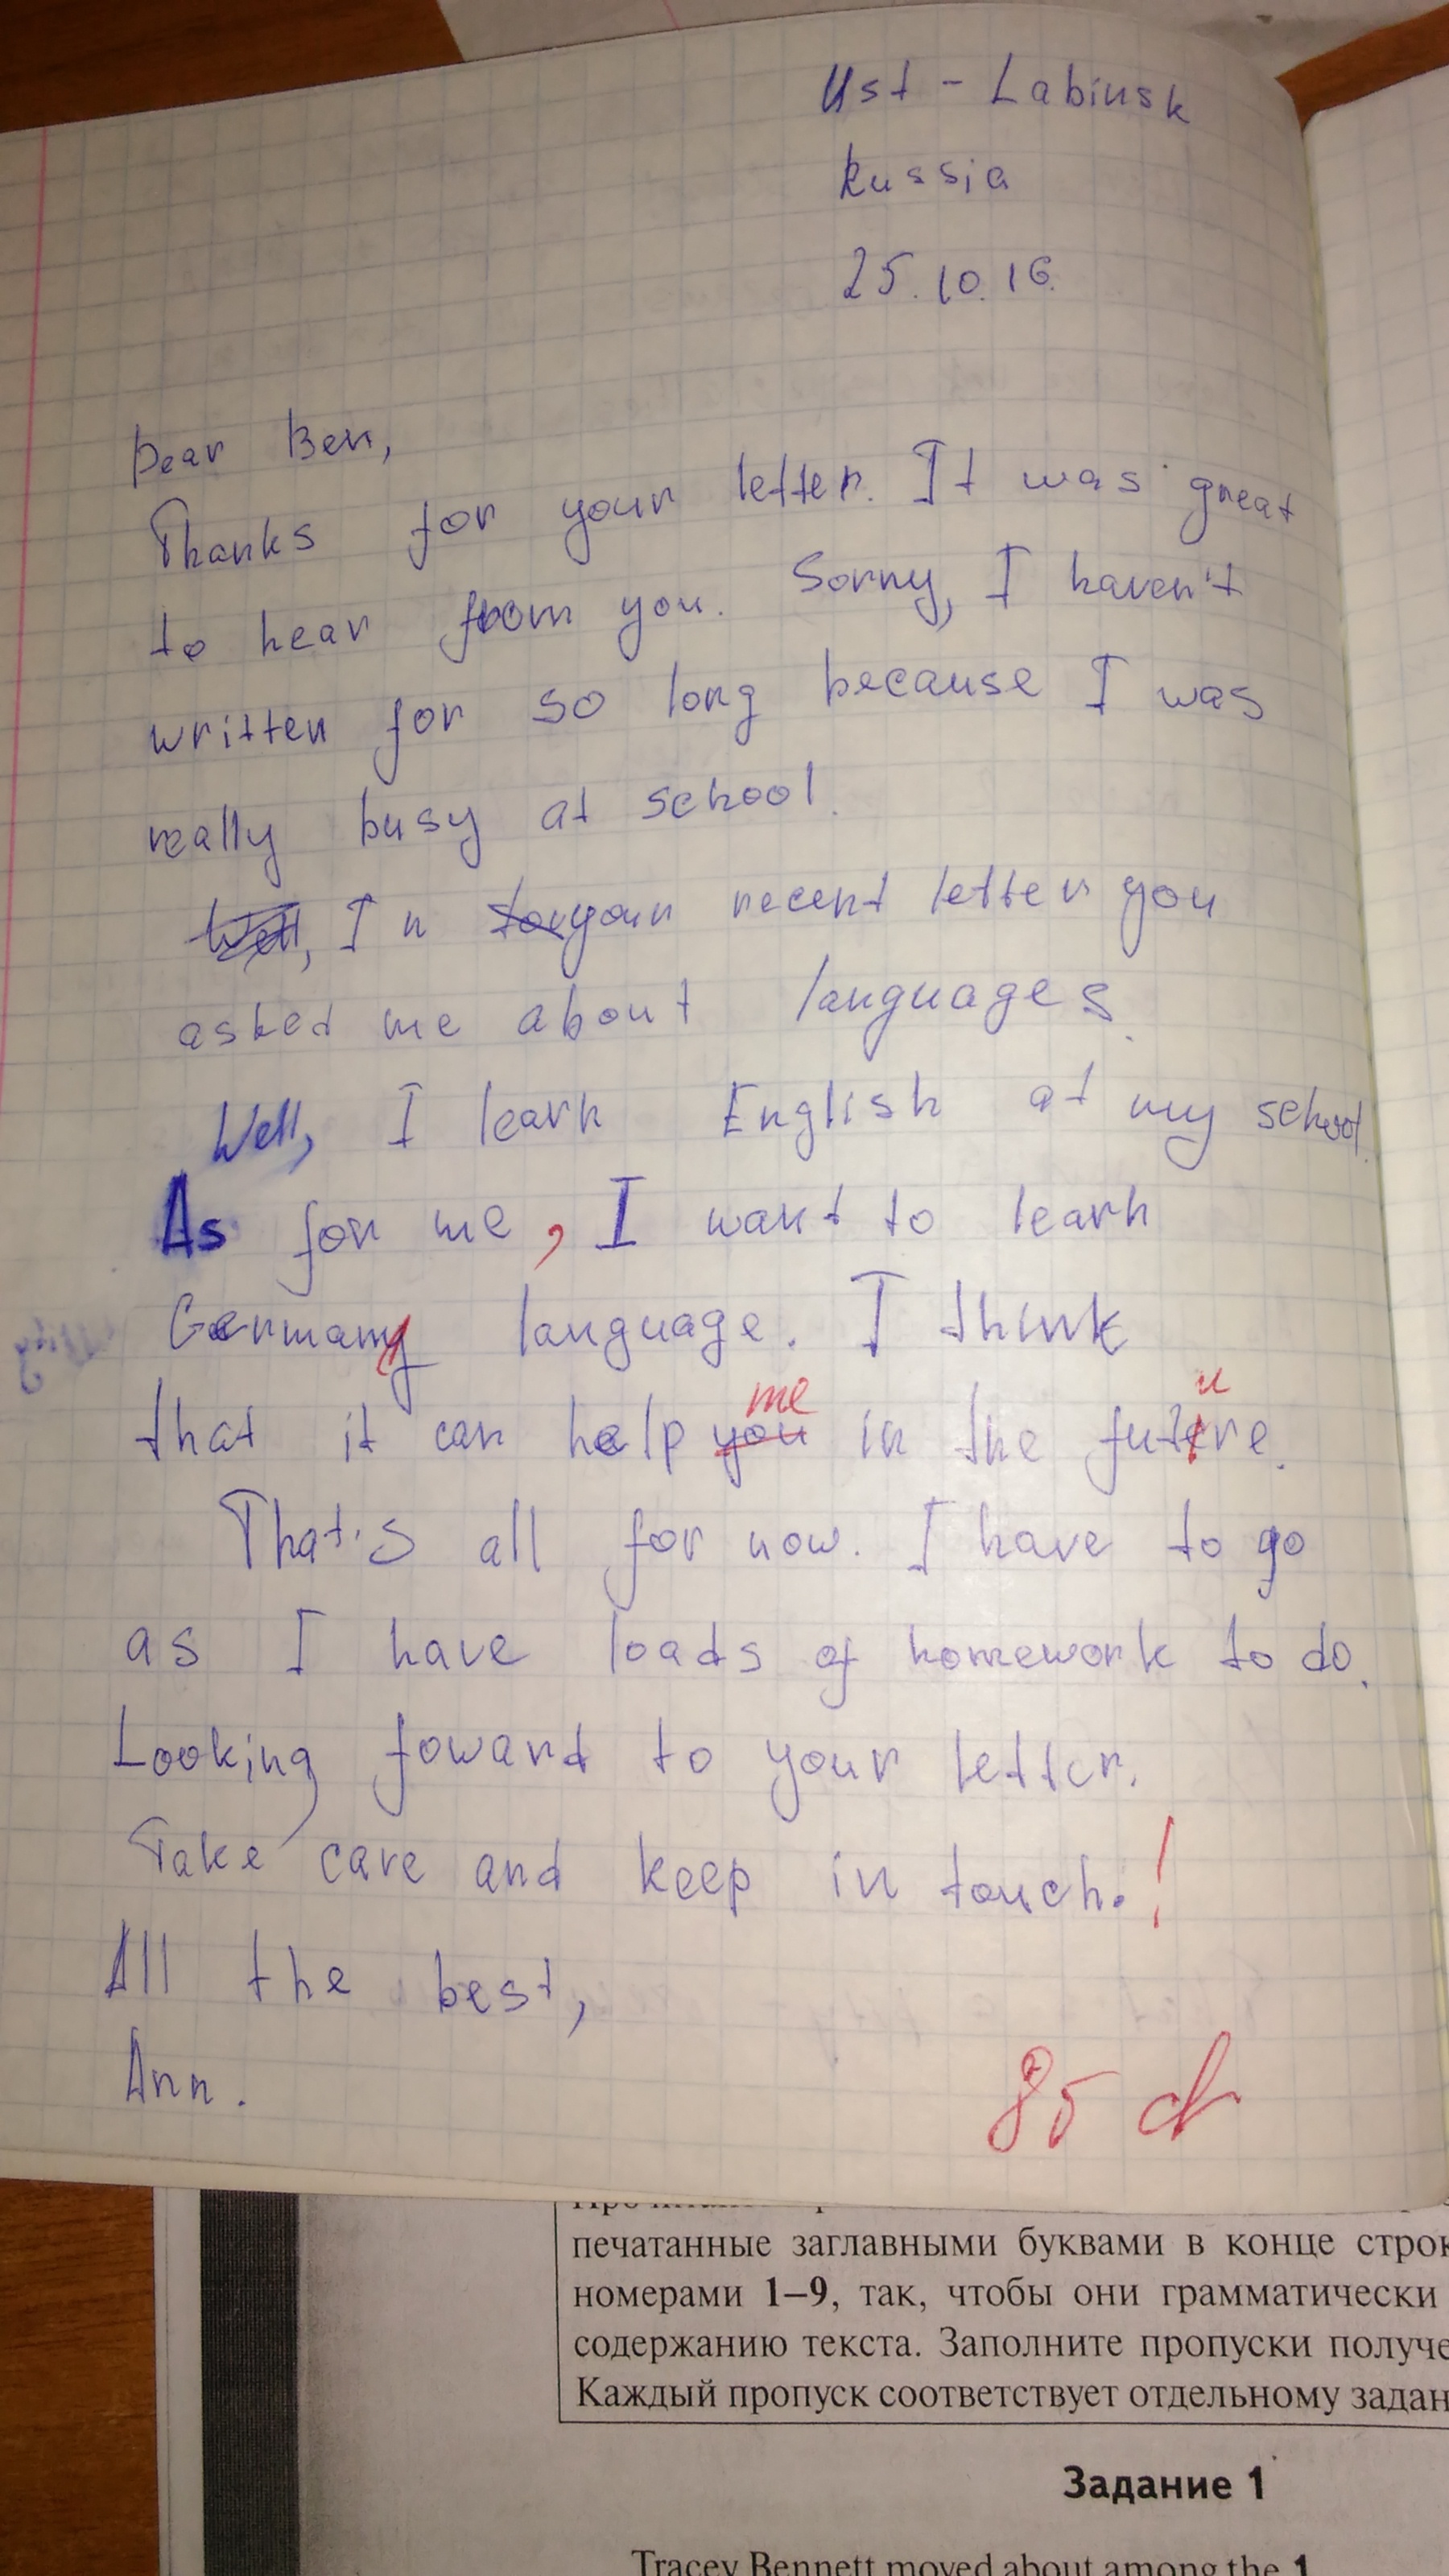 Ust - Labinsk
Russia
25.10.16.
Dear Ben,
Thanks for your letter. It was great
to hear from you. Sorry, I haven't
written for so long because I was
really busy at school.
Well, In your recent letter you
asked me about languages.
Well, I learn English at my school.
As for me, I want to learn
Germany language. I think
me u
that it can help you in the futire.
That's all for now. I have to go
as I have loads of homework to do.
Looking foward to your letter.
Take care and keep in touch.!
All the best,
Ann.
85
печатанные заглавными буквами в конце строк
номерами 1–9, так, чтобы они грамматически
содержанию текста. Заполните пропуски получе
Каждый пропуск соответствует отдельному задан
Задание 1
Tracey Bennett moved about among the 1